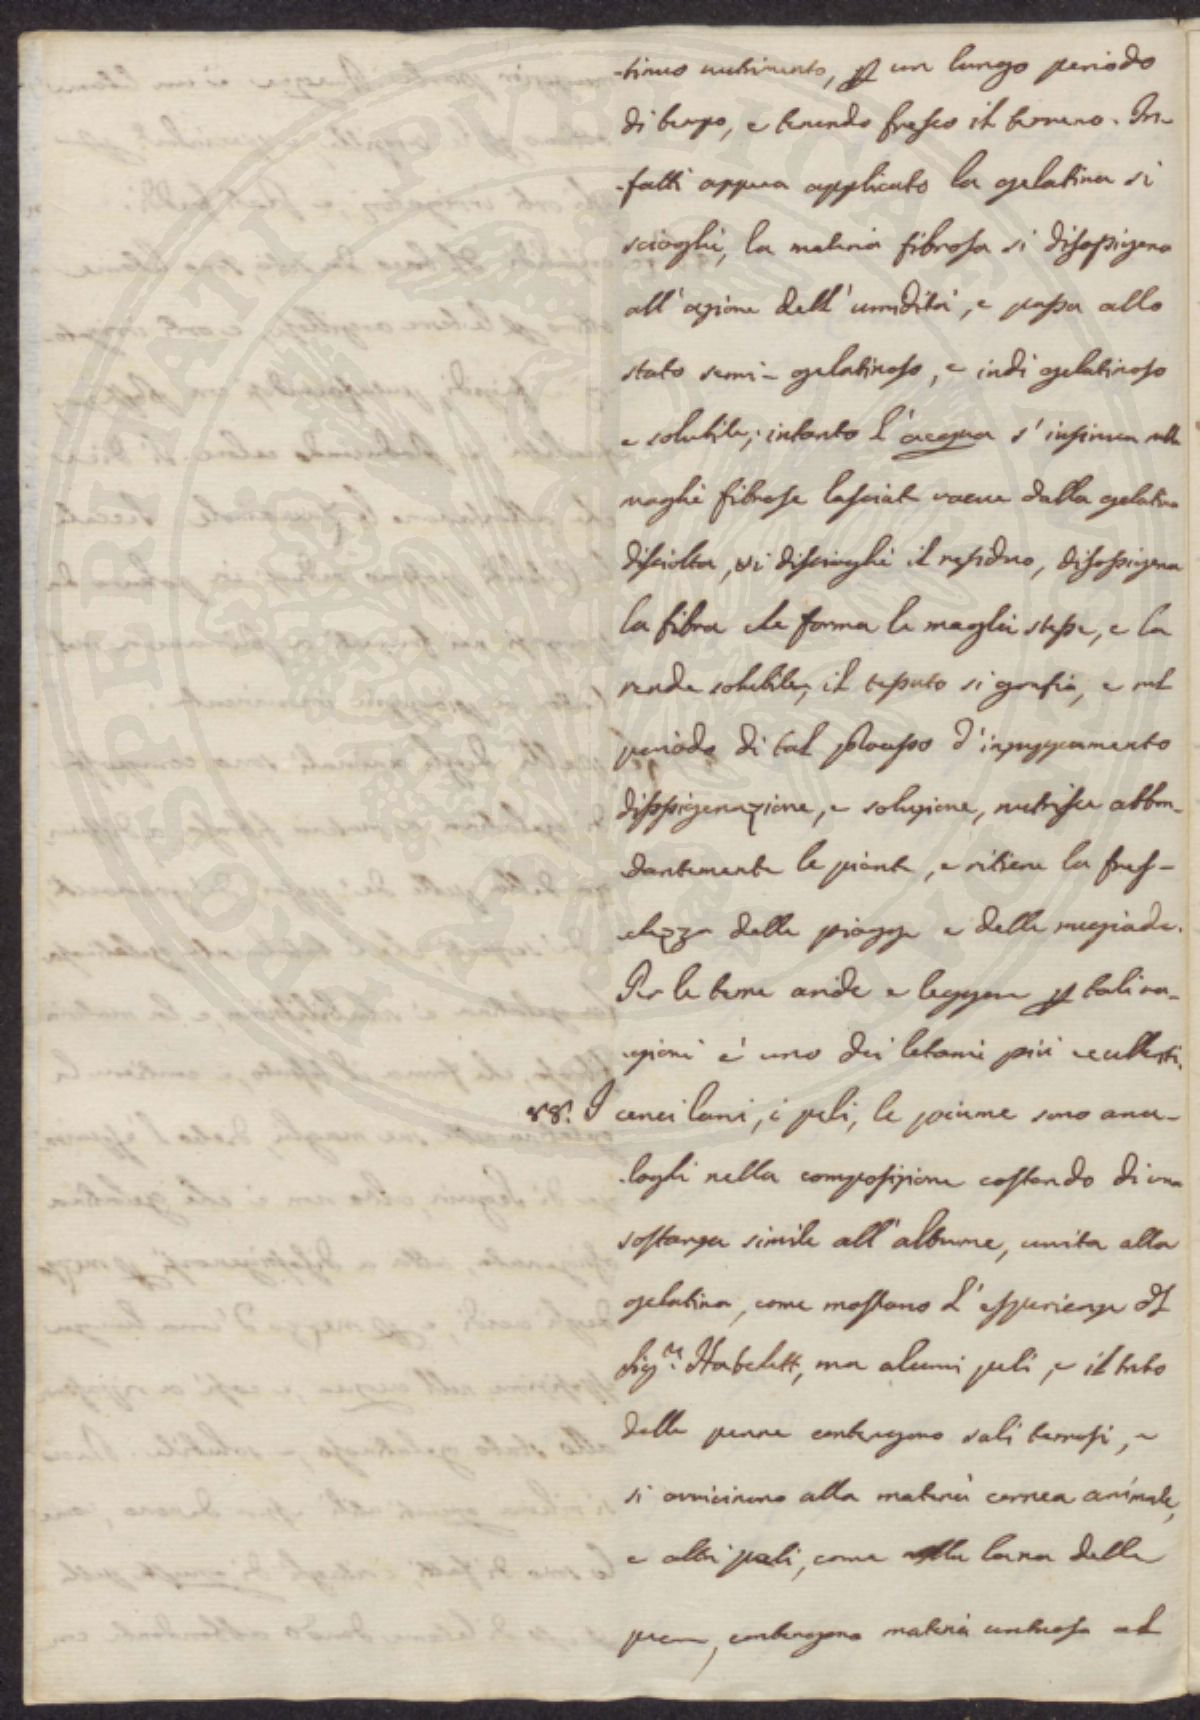 -tinuo nutrimento, p un lungo periodo
di tempo, e tenendo fresco il terreno. In-
-fatti appena applicato la gelatina si
scioglie, la materia fibrosa si disossigena
all'azione dell'umidità, e passa allo
stato semi-gelatinoso, e indi gelatinoso
e solubile; intanto l'acqua s'insinua nelle
maglie fibrose lasciate vacue dalla gelatina
disciolta, vi discioglie il residuo, disossigena
la fibra che forma le maglie stesse, e la
rende solubile, il tessuto si gonfia, e nel
periodo di tal processo d'inzuppamento
disossigenazione, e soluzione, nutrisce abbon-
dantemente le piante, e ritiene la fres-
chezza delle piogge e delle rugiade.
Per le terre aride e leggere p tali ra-
-gioni è uno dei letami più eccellenti.
88. I cenci lani, i peli, le piume sono ana-
-loghi nella composizione costando di una
sostanza simile all'albume, unita alla
gelatina, come mostano l'esperienze del
Sig.r Hatchett, ma alcuni peli, e il tubo
delle penne contengono sali terrosi, e
si avvicinano alla materia cornea animale,
e altri peli, come nella lana delle
contengono materia untuosa al